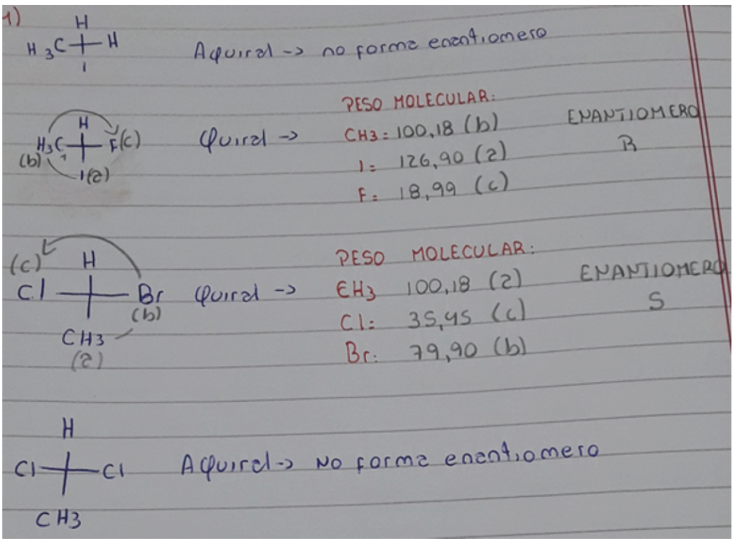 1)
H
H3C H
I
Aquiral -> no forma enantiomero
H
H3C F(c)
(b)
I(a)
Quiral ->
PESO MOLECULAR:
CH3: 100,18 (b)
I: 126,90 (a)
F: 18,99 (c)
ENANTIOMERO
R
(c)
H
Cl Br
(b)
CH3
(a)
Quiral ->
PESO MOLECULAR:
CH3 100,18 (a)
Cl: 35,45 (c)
Br: 79,90 (b)
ENANTIOMERO
S
H
Cl Cl
CH3
Aquiral -> No forma enantiomero